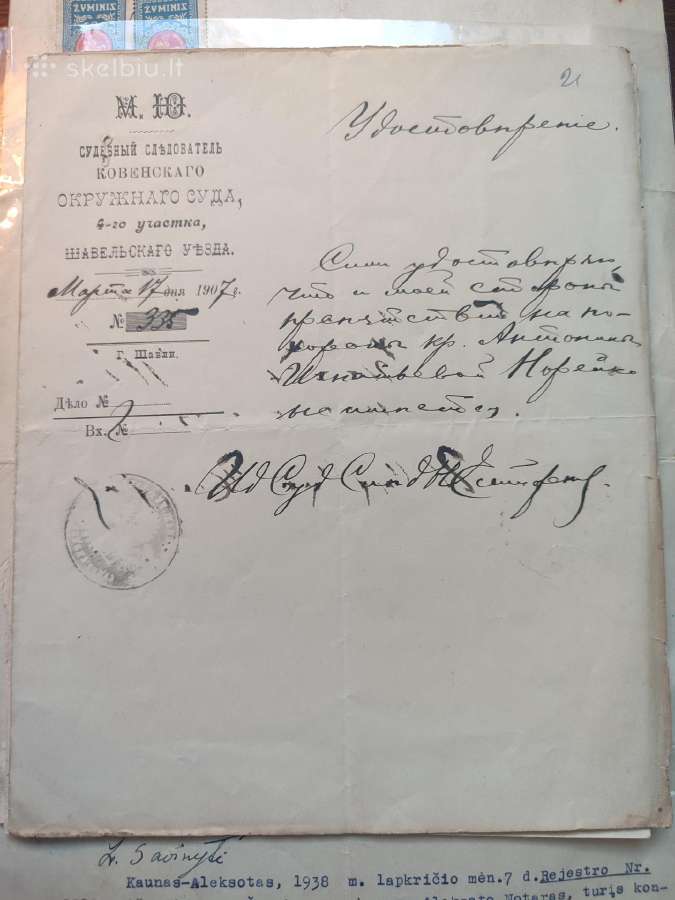 ŽYMINIS ŽYMINIS
skelbiu.lt
21
М. Ю.
СУДЕБНЫЙ СЛѢДОВАТЕЛЬ
КОВЕНСКАГО
ОКРУЖНАГО СУДА,
4-го участка,
ШАВЕЛЬСКАГО УѢЗДА.
Марта 17 дня 1907 г.
№ 335
Г. Шавли.
Дѣло №
Вх. №
Удостовѣреніе.
Симъ удостовѣряю,
что съ моей стороны
препятствій на по-
хороны кр. Антонины
Игнатьевой Норейко
не имѣется.
Ид Суд Слѣд
Kaunas-Aleksotas, 1938 m. lapkričio mėn. 7 d. Rejestro Nr.
Notaras, turįs kon-